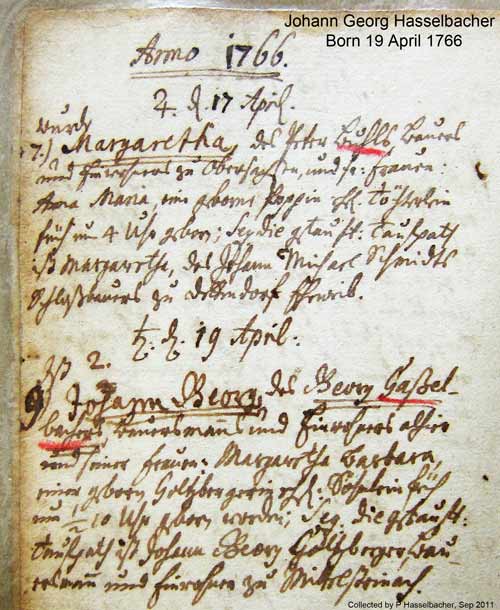 Johann Georg Hasselbacher
Born 19 April 1766
Anno 1766.
♃. d. 17 April.
wurde
7.) Margaretha, des Peter Buhls, Bauers
und Einwohners zu Obersachsen, und fr: Frauen:
Anna Maria, eine geborne Poppin ehl. Töchterlein
früh um 4 Uhr geborn; hujus die getauft: Taufpath
ist Margaretha, des Johann Michael Schmidts
Schloßbauers zu Dettendorf Eheweib.
♄. d. 19 April.
Ist 2.
9. Johann Georg, des Georg Haßel-
bachers Bauersmanns und Einwohners alhier
und seiner Frauen: Margaretha Barbara,
einer geborn Holzbergerin ehl. Söhnlein früh
um 1/2 10 Uhr geborn worden; die getauft:
Taufpath ist Johann Georg Holzberger, Bau-
ersmann und Einwohner zu Mittelsteinach.
Collected by P Hasselbacher, Sep 2011